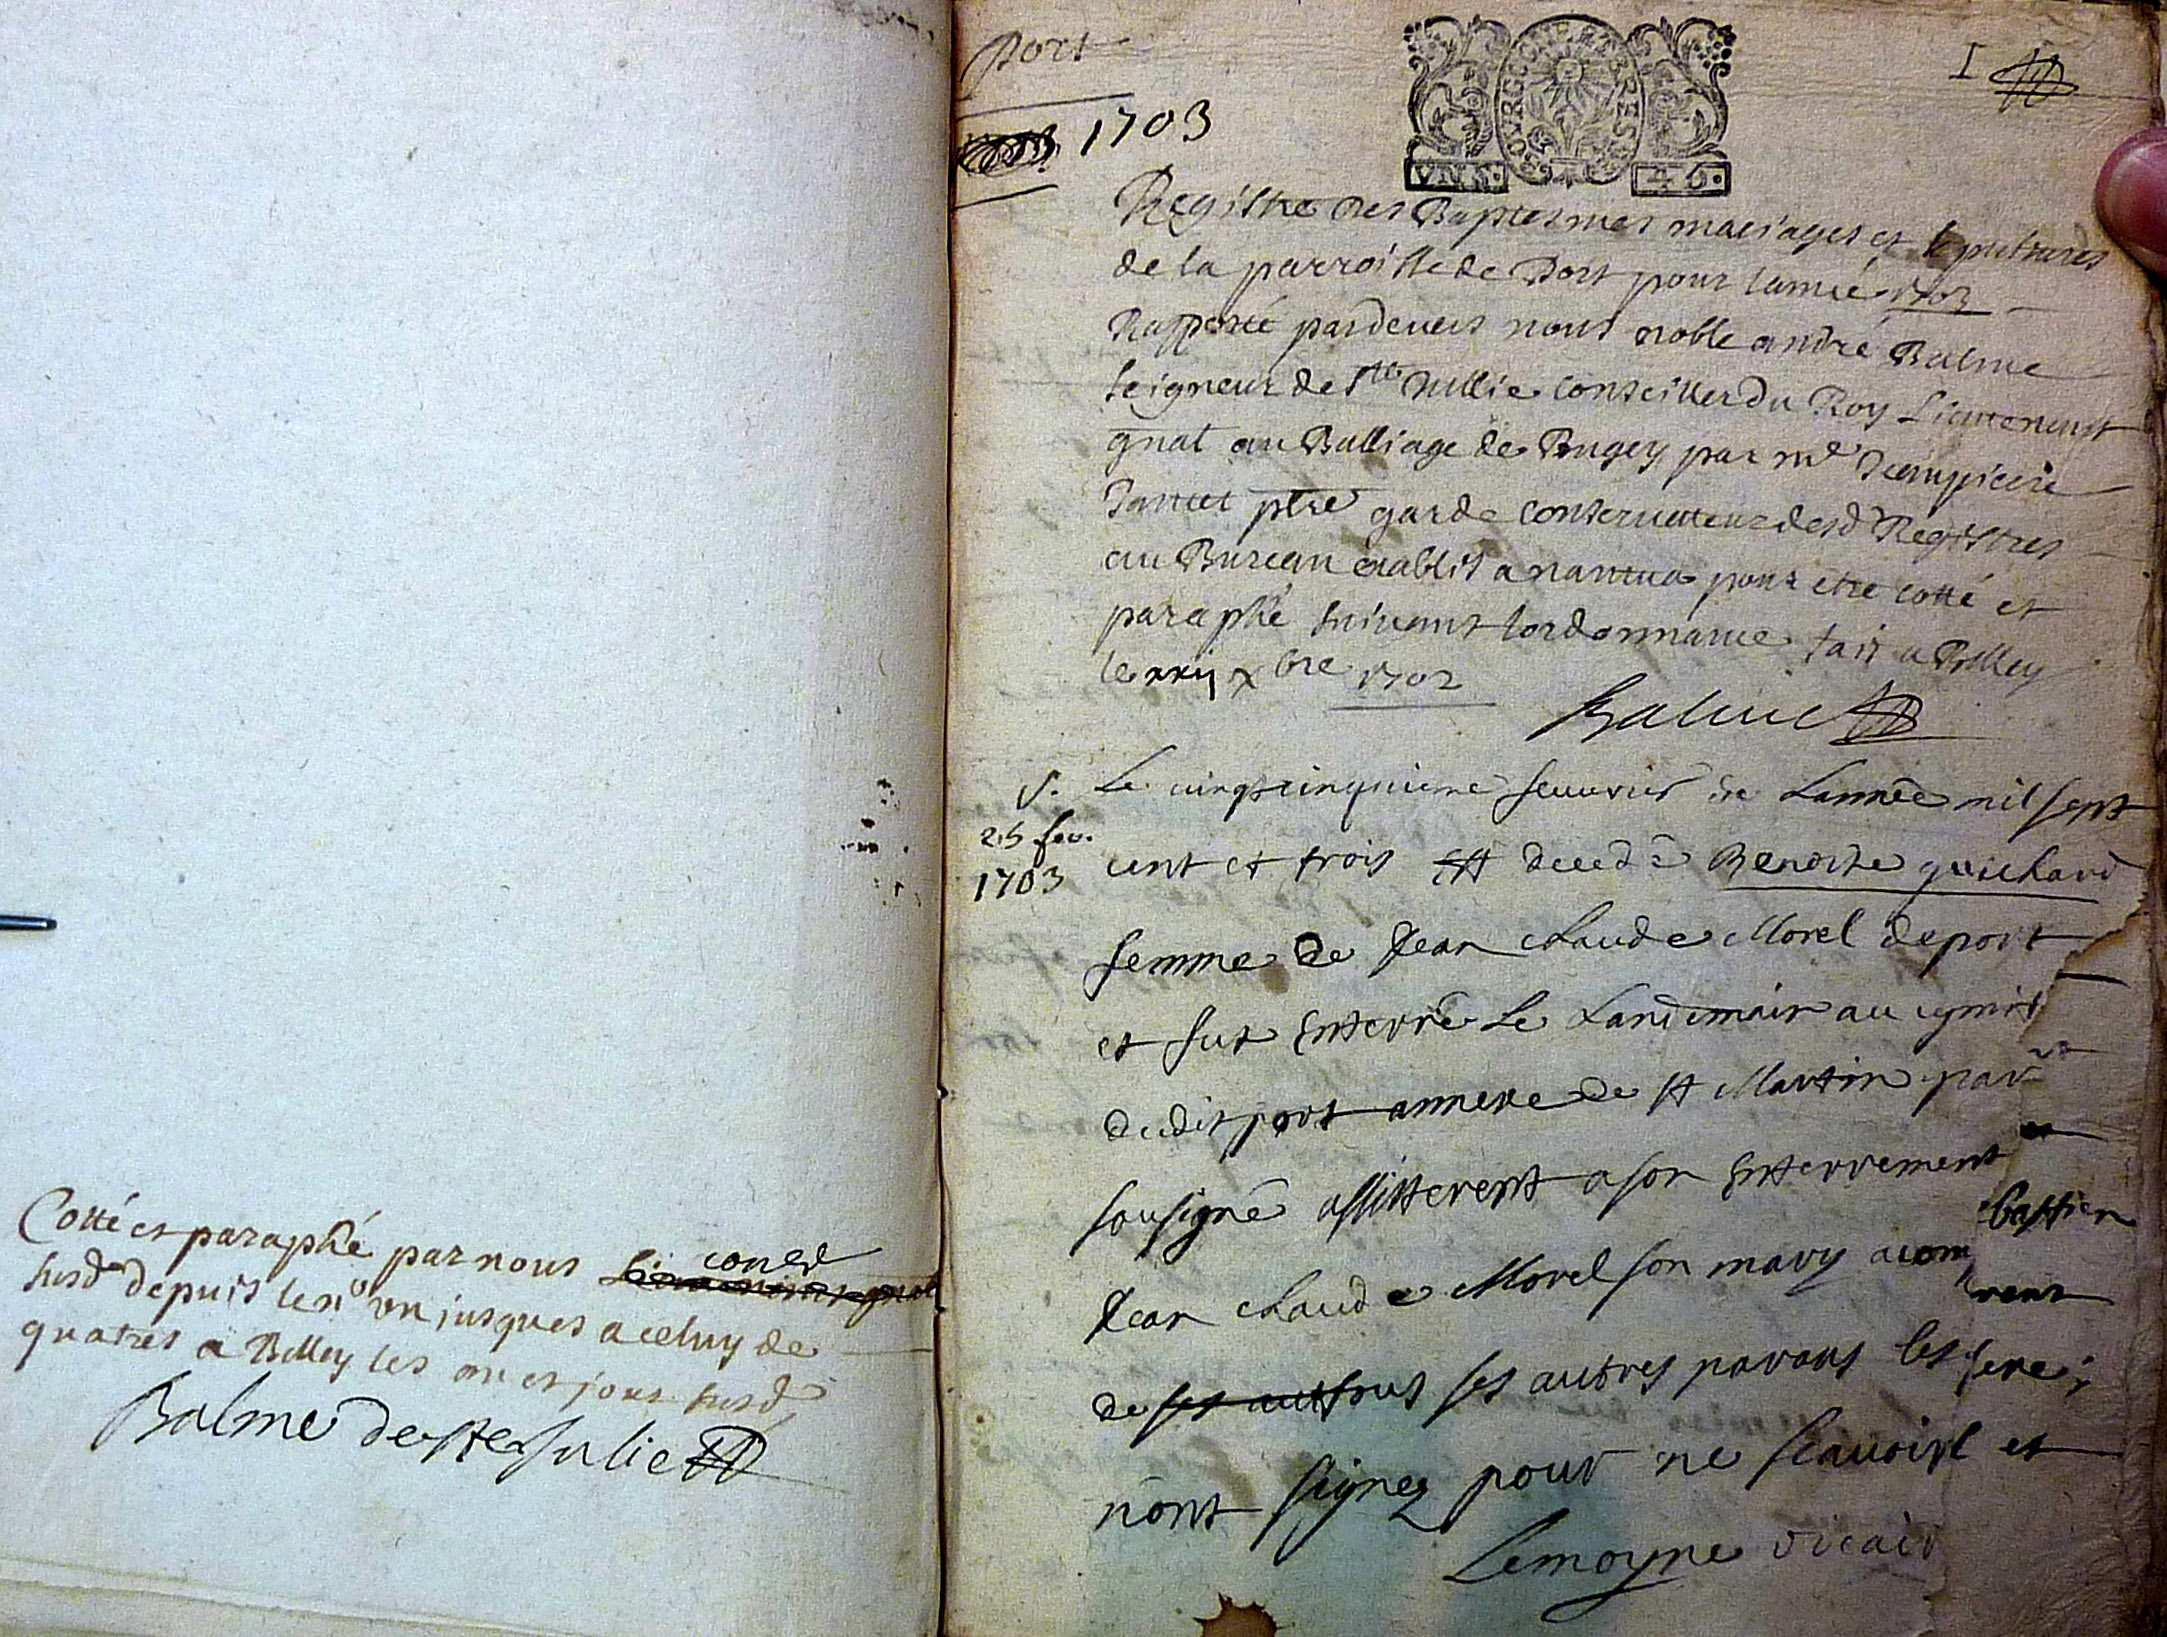 Cotté et paraphé par nous conser
susd depuis le no un jusques a celuy de
quatres a Belley les an et jour susd
Balme de ste Julie
Port
1703
BOVRGOGNE ET BRESSE
VN S. 4 D.
I
Registre des Baptesmes mariages et sepultures
de la parroisse de Port pour lannée 1703
Rapporté pardevers nous noble andré Balme
seigneur de ste Jullie conseiller du Roy Lieutenant
gnal au Balliage de Bugey par me Jean pierre
ptre garde conservateur desd Registres
au Bureau establit a nantua pour etre cotté et
paraphé suivant lordonnance fait a Belley
le xxij xbre 1702
Balme
S.
25 fev.
1703
Le vingtcinquieme feuvrier de Lannée mil sept
cent et trois est decedé Benoite guichard
femme de Jean claude Morel de port
et fut Enterré Le Landemain au cymit
dudit port annexe de st Martin par
sousigné assisterent a son Enterrement
Jean claude Morel son mary acom
de ses aut tous ses autres parans les
nont signez pour ne scavoir et
Lemoyne vicair